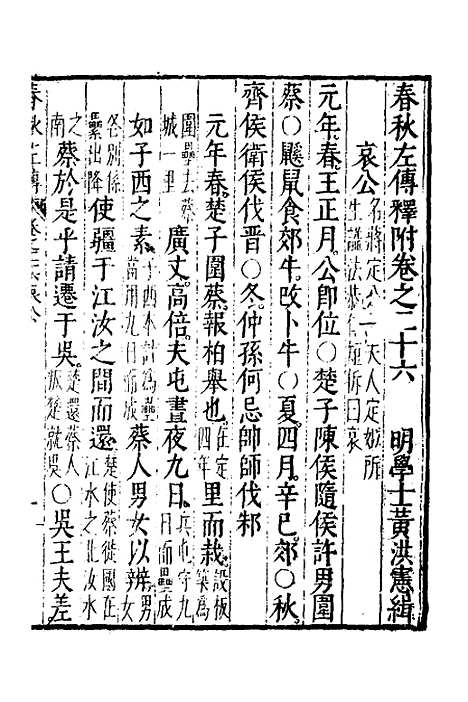 春秋左傳釋附卷之二十六　明學士黃洪憲緝
哀公名將定公之夫人定姒所生謚法恭仁短折曰哀
元年春王正月公卽位○楚子陳侯隨侯許男圍
蔡○鼷鼠食郊牛改卜牛○夏四月辛巳郊○秋
齊侯衛侯伐晉○冬仲孫何忌帥師伐邾
元年春楚子圍蔡報柏舉也在定四年里而栽設板築為
圍壘去蔡城一里廣丈高倍夫屯晝夜九日兵屯守九日而壘成
如子西之素子西本計為壘當用九日而成蔡人男女以辨男女
各別係纍出降使疆于江汝之間而還楚使蔡徙國在江水之北汝水
之南蔡於是乎請遷于吳楚還蔡人叛楚就吳○吳王夫差
春秋左傳釋卷之二十六哀公
一